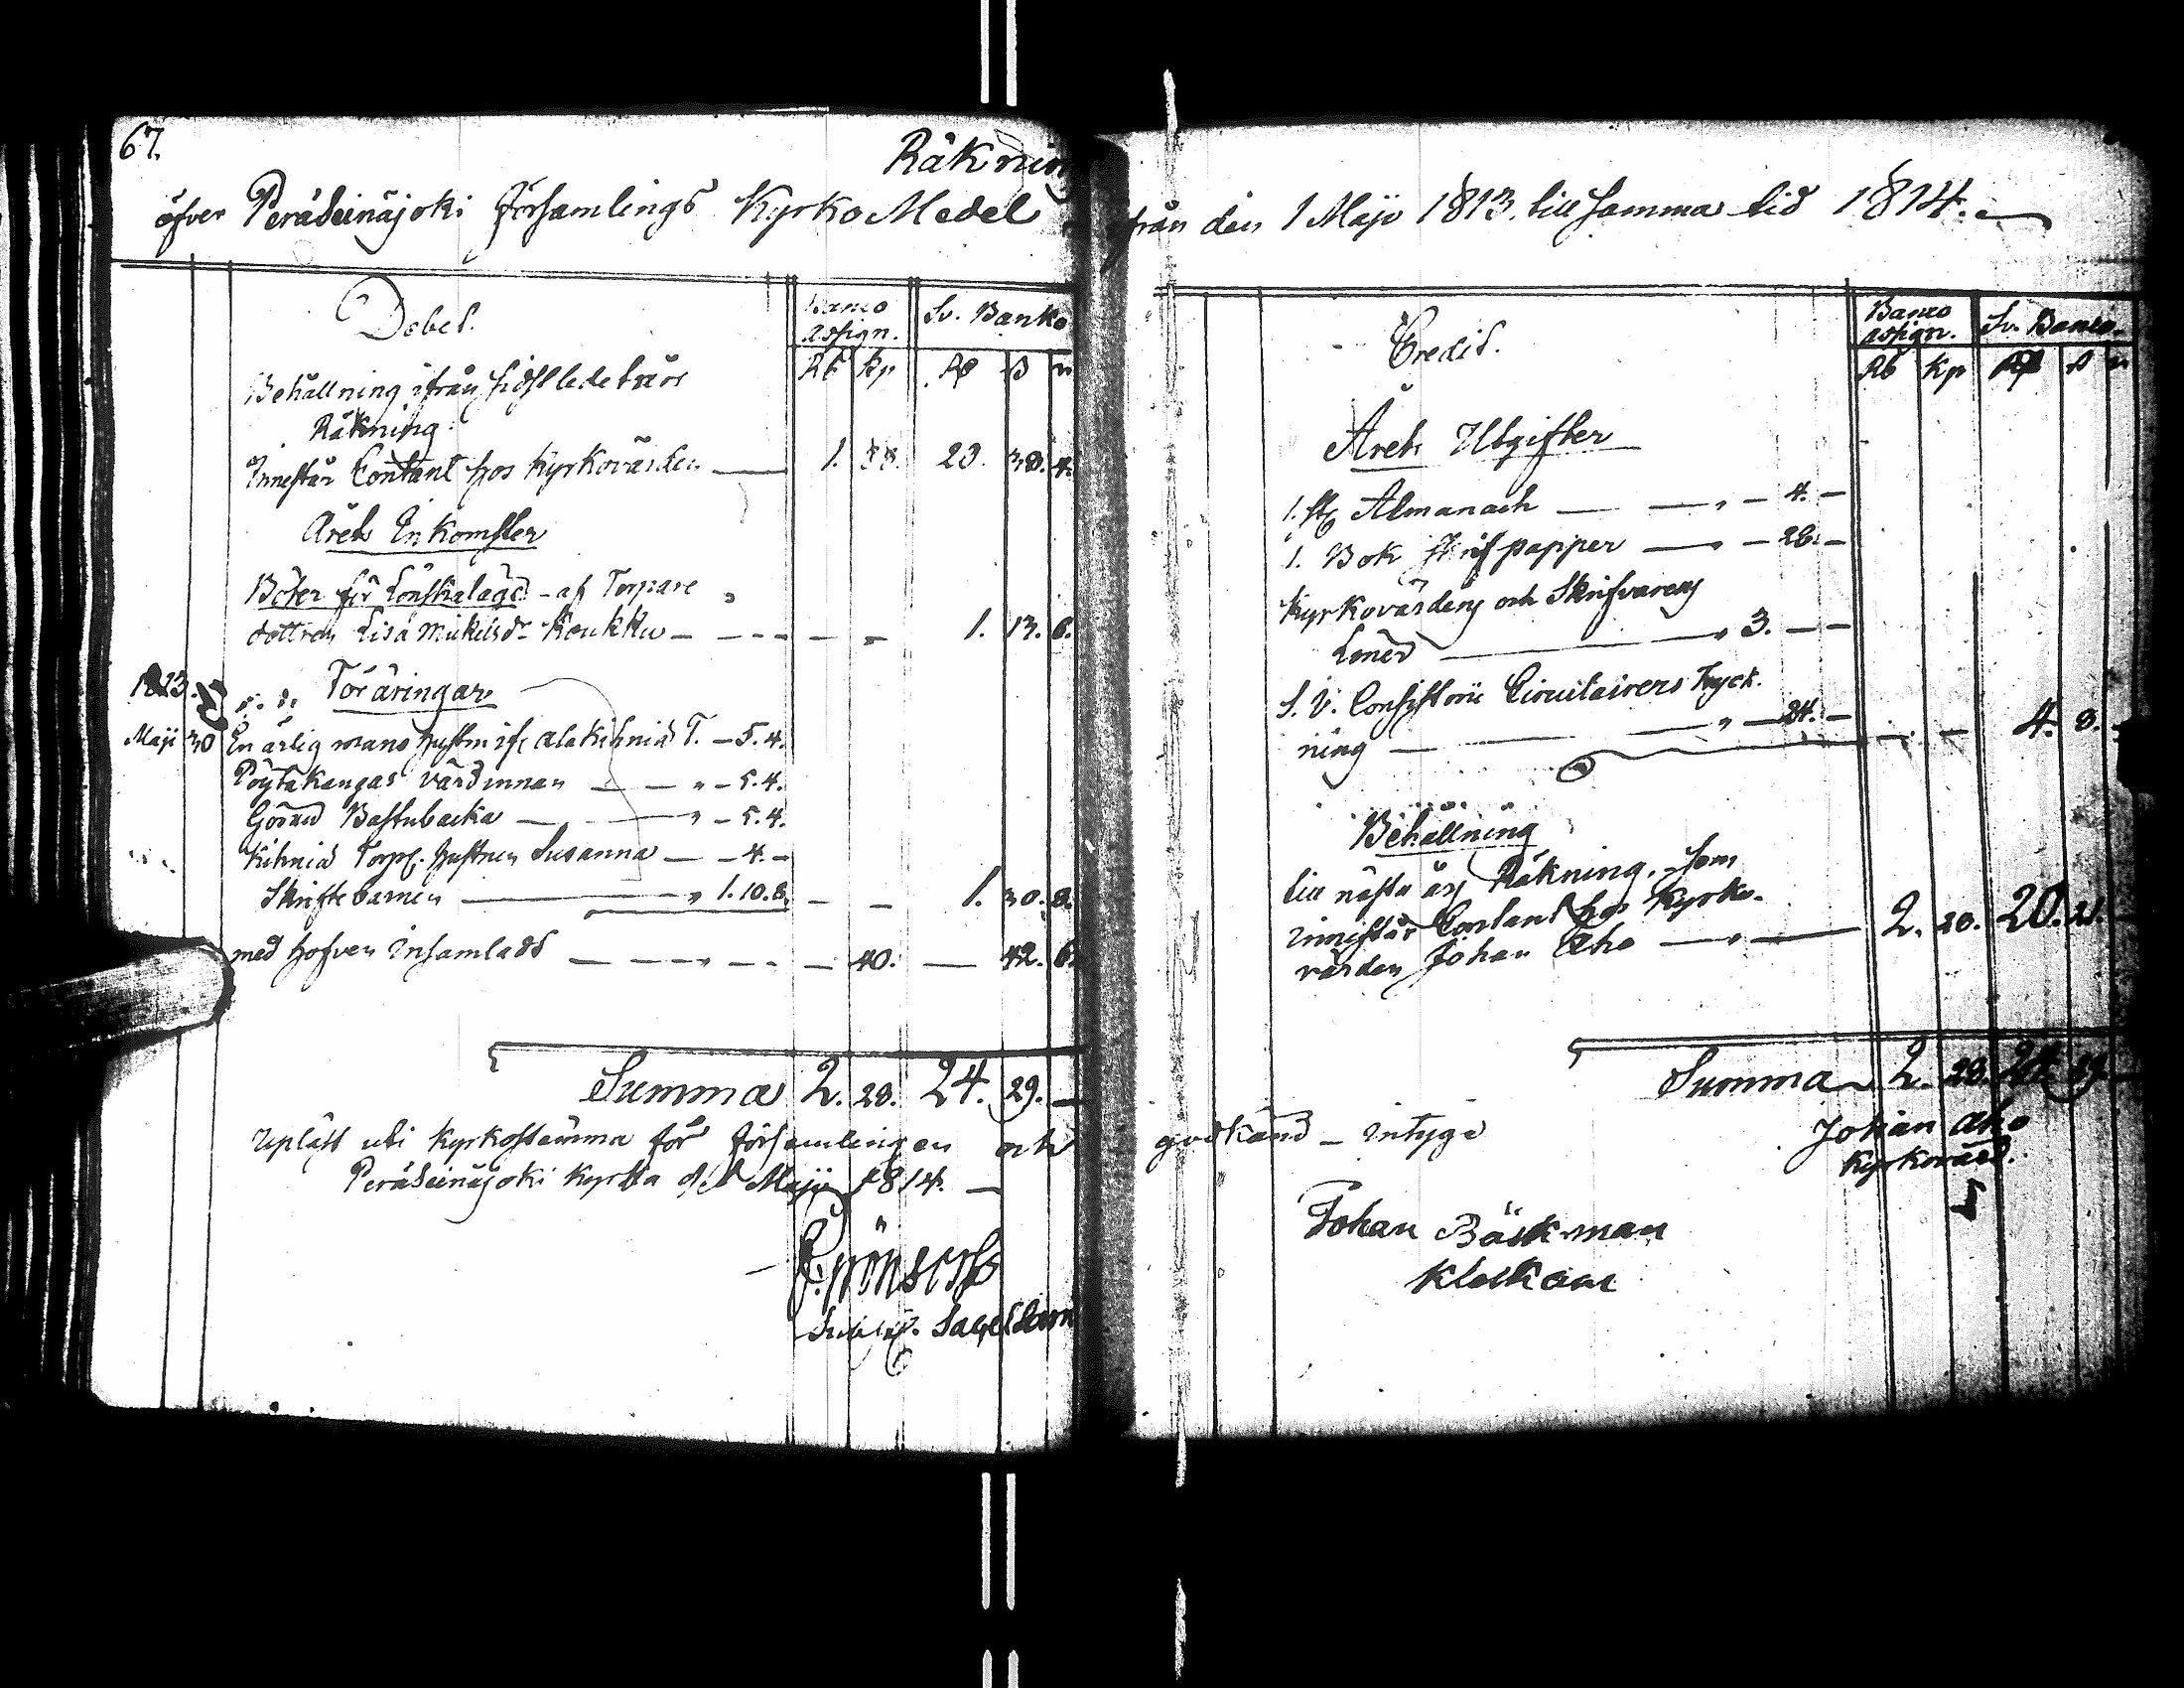 67.
Räkning
öfver Peräseinäjoki församlings Kyrko Medel
Debet.
Banco assign. Sv. Banko
Rb Kp Rd ß r
Behållning ifrån sidstledet års
Räkning:
Innestår Contant hos Kyrkovärden — 1. 88. 23. 38. 4.
Årets Inkomster
Böter för Lönskaläge - af Torpare
dottren Lisa Mickelsdr Koukku — 1. 13. 6.
1813. Föräringar
Maji 30 En ärlig mans hustru ifr. Alakihniä T. — 5. 4.
Pöytäkangas Värdinnan — " — 5. 4.
Göran Bastubacka — " — 5. 4.
Kihniä Torp. hustrun Susanna — — 4. —
Skriftebarnen — " 1. 10. 8. — — 1. 30. 8.
med Hofven insamladt — — 40. — 42. 6.
Summa 2. 28. 24. 29. —
Upläst uti Kyrkostämma för församlingen och
Peräseinäjoki Kyrka d. 1 Maji 1814. —
från den 1 Maji 1813. till samma tid 1814.
Credit.
Banco assign. Sv. Banco.
Rb Kp Rd ß r
Årets Utgifter
1. st. Almanach — — " — 4. —
1. Bok skrifpapper — " — 28. —
Kyrkovärdens och Skrifvarens
Löner — " 3. — —
S. V. Consistorii Circulairers tryck-
ning — " — 24. — — — 4. 8. —
Behållning
till nästa års Räkning, som
innestår Contant hos Kyrko-
värden Johan Aho — " — 2. 28. 20. 21. —
Summa 2. 28. 24. 29 —
godkänd — intyga
Johan Aho
Kyrkovärd.
Johan Bäckman
Klockare